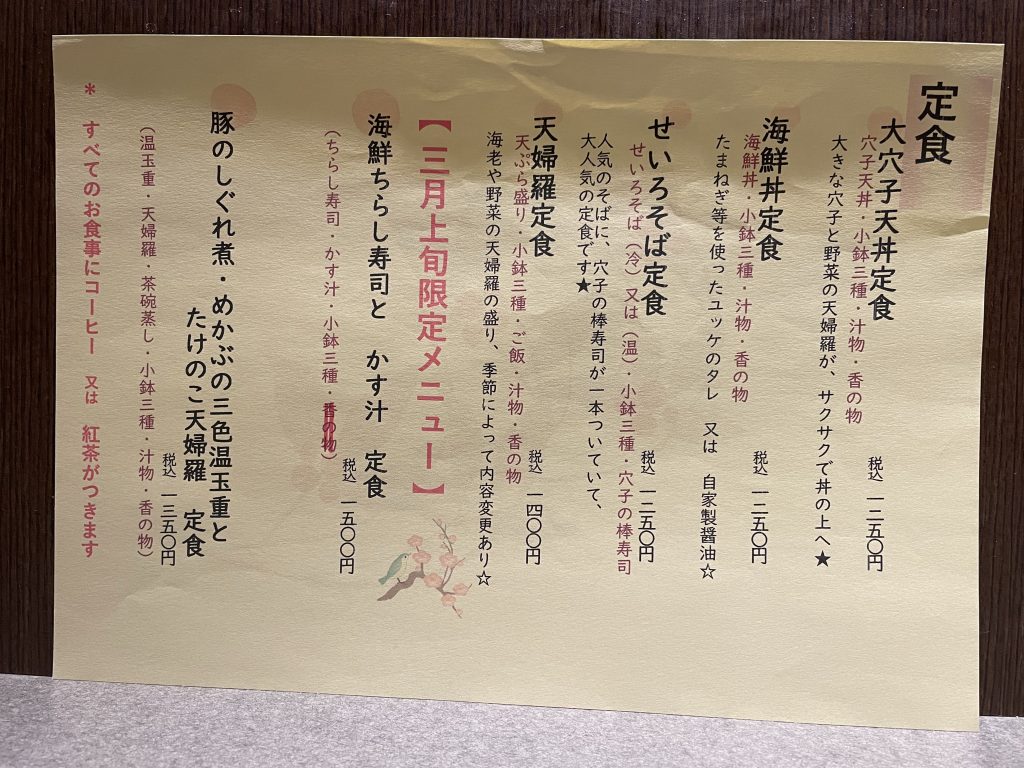 定食
大穴子天丼定食
穴子天丼・小鉢三種・汁物・香の物
税込 一二五〇円
大きな穴子と野菜の天婦羅が、サクサクで丼の上へ★
海鮮丼定食
海鮮丼・小鉢三種・汁物・香の物
税込 一二五〇円
たまねぎ等を使ったユッケのタレ 又は 自家製醤油☆
せいろそば定食
せいろそば（冷）又は（温）・小鉢三種・穴子の棒寿司
税込 一二五〇円
人気のそばに、穴子の棒寿司が一本ついていて、
大人気の定食です★
天婦羅定食
天ぷら盛り・小鉢三種・ご飯・汁物・香の物
税込 一四〇〇円
海老や野菜の天婦羅の盛り、季節によって内容変更あり☆
【三月上旬限定メニュー】
海鮮ちらし寿司と かす汁 定食
（ちらし寿司・かす汁・小鉢三種・香の物）
税込 一五〇〇円
豚のしぐれ煮・めかぶの三色温玉重と
たけのこ天婦羅 定食
税込 一三五〇円
（温玉重・天婦羅・茶碗蒸し・小鉢三種・汁物・香の物）
* すべてのお食事にコーヒー 又は 紅茶がつきます